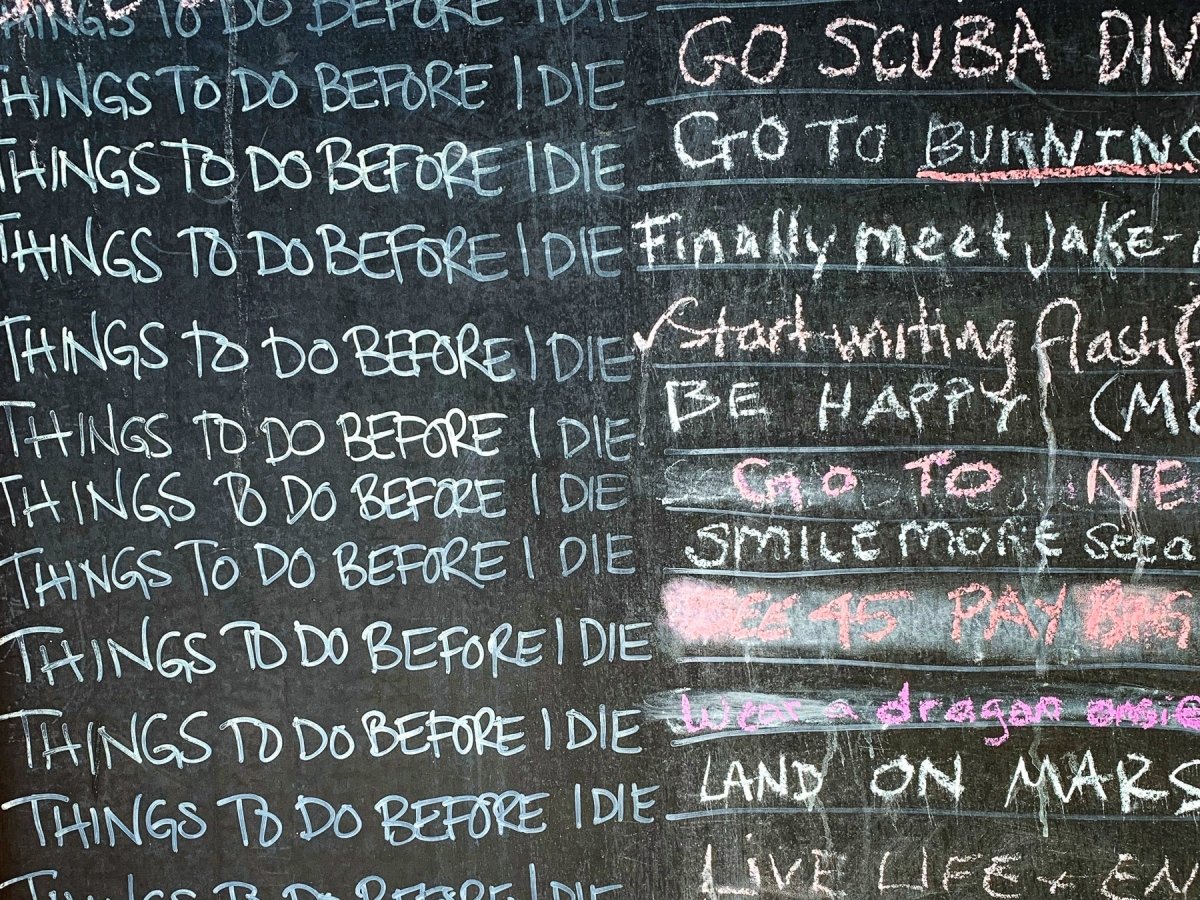 THINGS TO DO BEFORE I DIE
THINGS TO DO BEFORE I DIE GO SCUBA DIV
THINGS TO DO BEFORE I DIE GO TO BURNING
THINGS TO DO BEFORE I DIE Finally meet Jake-
THINGS TO DO BEFORE I DIE ✓Start writing flash
THINGS TO DO BEFORE I DIE BE HAPPY (M
THINGS TO DO BEFORE I DIE GO TO NE
THINGS TO DO BEFORE I DIE SMILE MORE
THINGS TO DO BEFORE I DIE SEE 45 PAY
THINGS TO DO BEFORE I DIE Wear a dragon onsie
THINGS TO DO BEFORE I DIE LAND ON MARS
THINGS TO DO BEFORE I DIE LIVE LIFE + EN